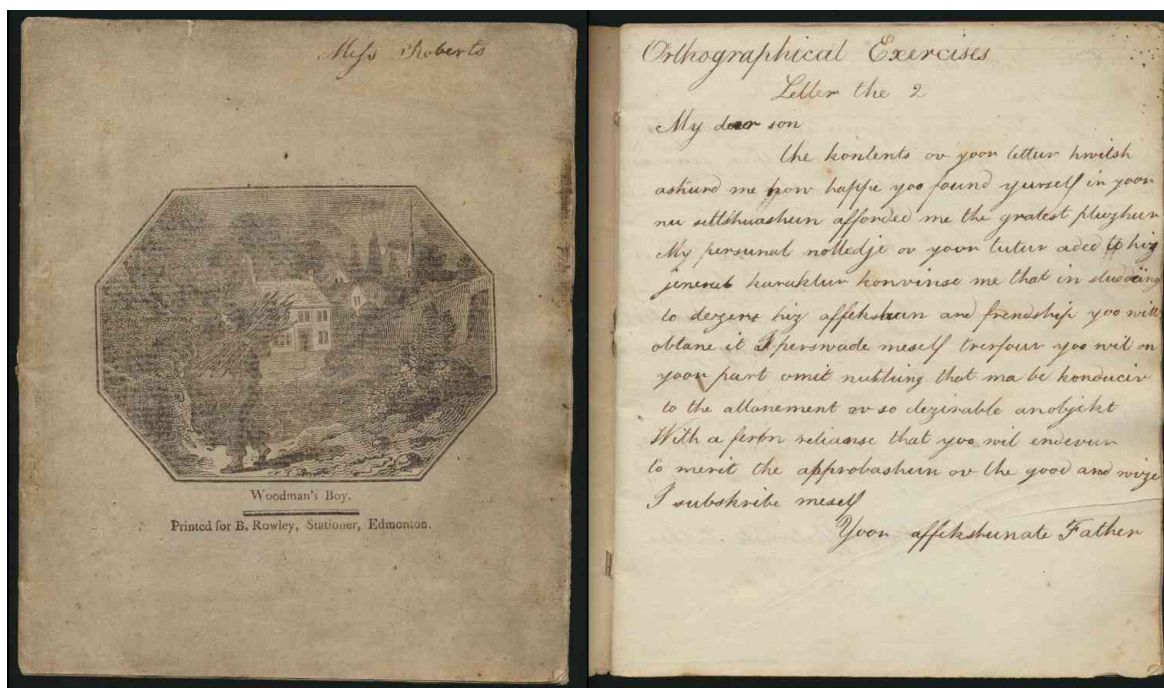 Miss Roberts
Woodman's Boy.
Printed for B. Rowley, Stationer, Edmonton.
Orthographical Exercises
Letter the 2
My dear son
the kontents ov yoor lettur hwitsh
ashurd me how happe yoo found yurself in yoor
nu sittshuashun afforded me the gratest plezhur
My persunal nolledje ov yoor tutur aded to hiz
jeneral karaktur konvinse me that in studding
to dezerv hiz affekshun and frendship yoo will
obtane it I perswade meself therfour yoo wil on
yoor part omit nuthing that ma be konduciv
to the attanement ov so dezirable an objekt
With a relianse that yoo wil endevur
to merit the approbashun ov the good and wize
I subskribe meself
Yoor affekshunate Father